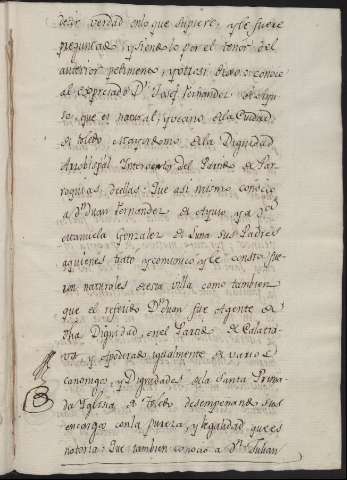 decir verdad en lo que supiere, y le fuere
preguntado, y siendolo por el tenor del
anterior pedimento, y ottosi dixo: conocio
al expresado Dn. Josef Fernandez de Ayu-
so, que es natural, y vecino de la Ciudad
de Toledo Mayordomo de la Dignidad
Arzobispal Interventor del Partido de Par-
roquias de ellas: Que asi mismo conocio
a Dn. Juan Fernandez de Ayuso, y a Da.
Manuela Gonzalez de Luna sus Padres
a quienes trato y comunico, y le consto fue-
ron naturales de esta villa como tambien
que el referido Dn. Juan fue Agente de
dha Dignidad, en el Partido de Calatra-
va, y Apoderado igualmente de varios C
anonigos, y Dignidades de la Santa Prima-
da Yglesia de Toledo desempeñando sus
encargos con la pureza, y legalidad que es
notoria: Que tambien conocio a Dn. Julian